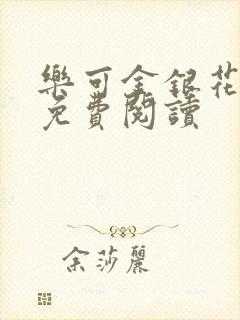 樂可金銀花
免費閱讀
余莎麗